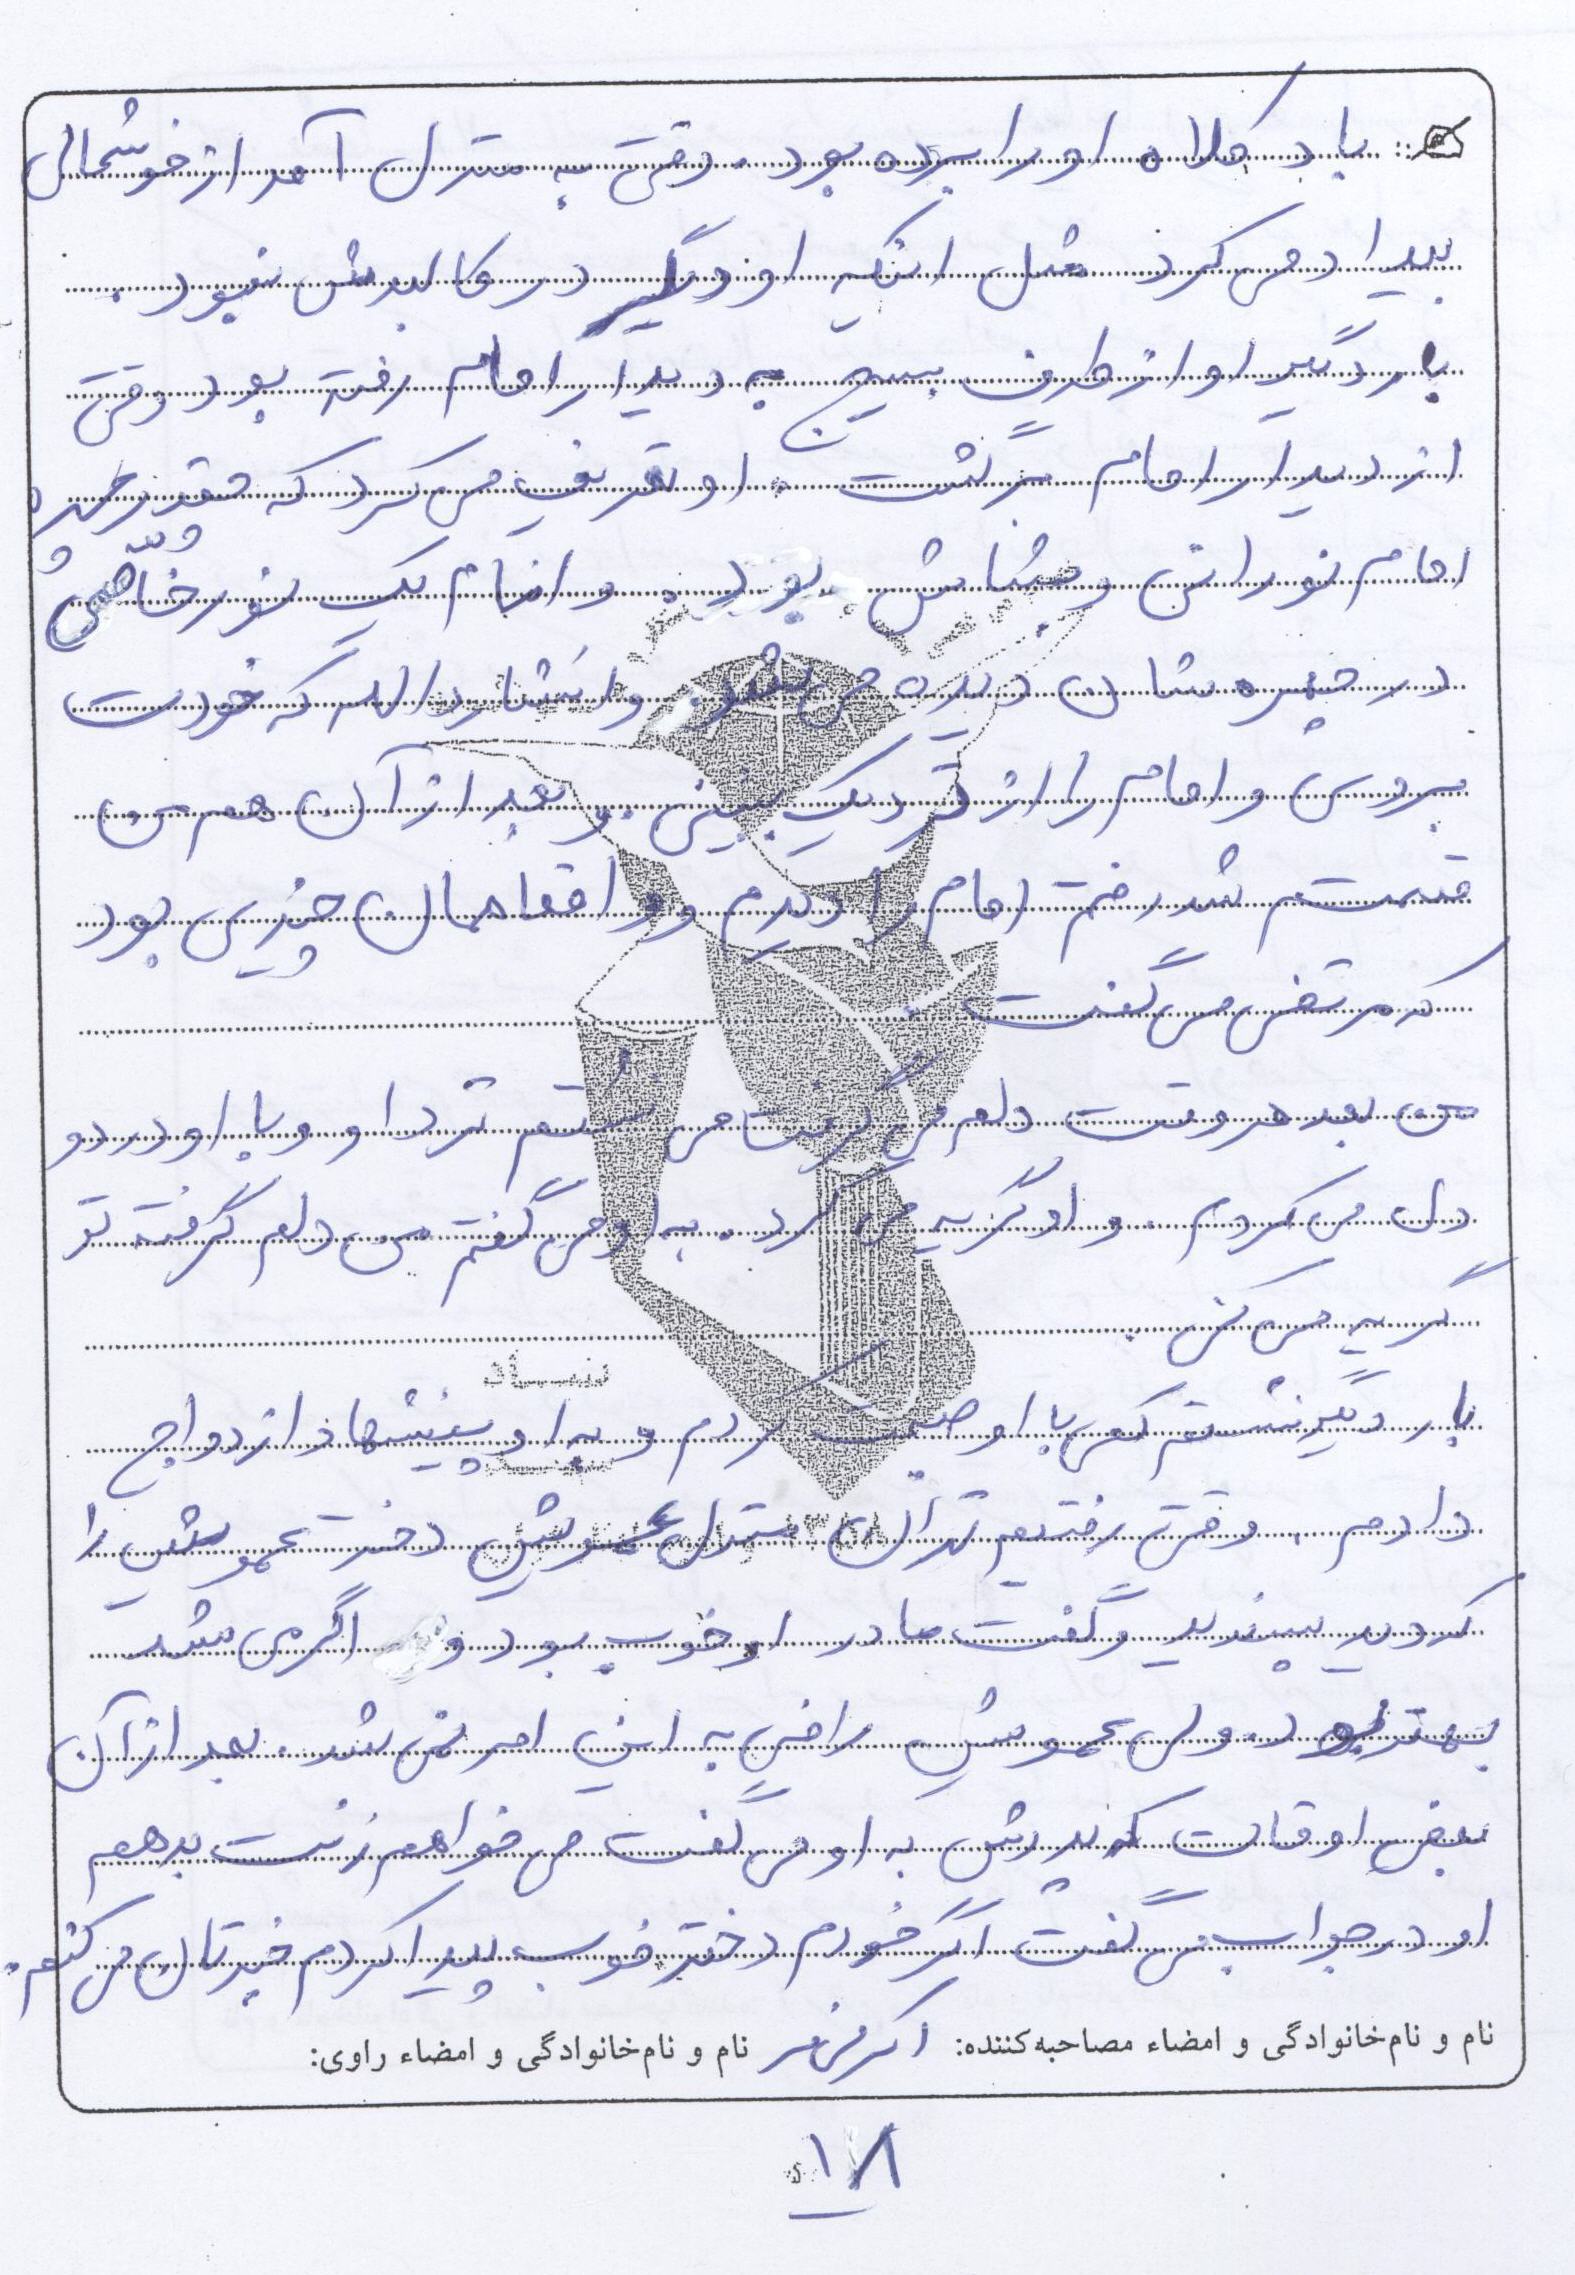 باد کلاه او را برده بود. وقتی به منزل آمد از خوشحالی
بیداد می کرد مثل اینکه او دیگر در کالبدش نبود.
بار دیگر او از طرف بسیج به دیدار امام رفته بود وقتی
از دیدار امام برگشت. او تعریف می کرد که چقدر چهره
امام نورانی و بشاش بود. و انگار یک نور خاصی
در چهره شان دیده می شد. و انشاء الله که خودت
بروی و امام را از نزدیک ببینی. و بعد از آن هم من
قسمتم شد رفتم امام را دیدم و واقعا همان چیزی بود
که مرتضی می گفت.
من بعد هر وقت دلم می گرفت می نشستم نزد او و با او درد و
دل می کردم. و او گریه می کرد. به او می گفتم من دلم گرفته تو
گریه می کنی.
بار دیگر نشستم کمی با او صحبت کردم و به او پیشنهاد ازدواج
دادم. وقتی رفتیم تهران منزل عمویش دختر عمویش را
کردید پسندید و گفت مادر او خوب بود و اگر می شد
بهتر بود. ولی عمویش راضی به این امر نمی شد. بعد از آن
بعضی اوقات که پدرش به او می گفت می خواهم زنت بدهم
او در جواب می گفت اگر خودم دختر خوب پیدا کردم خبرتان می کنم.
نام و نام‌خانوادگی و امضاء مصاحبه‌کننده: نام و نام‌خانوادگی و امضاء راوی:
۱۸